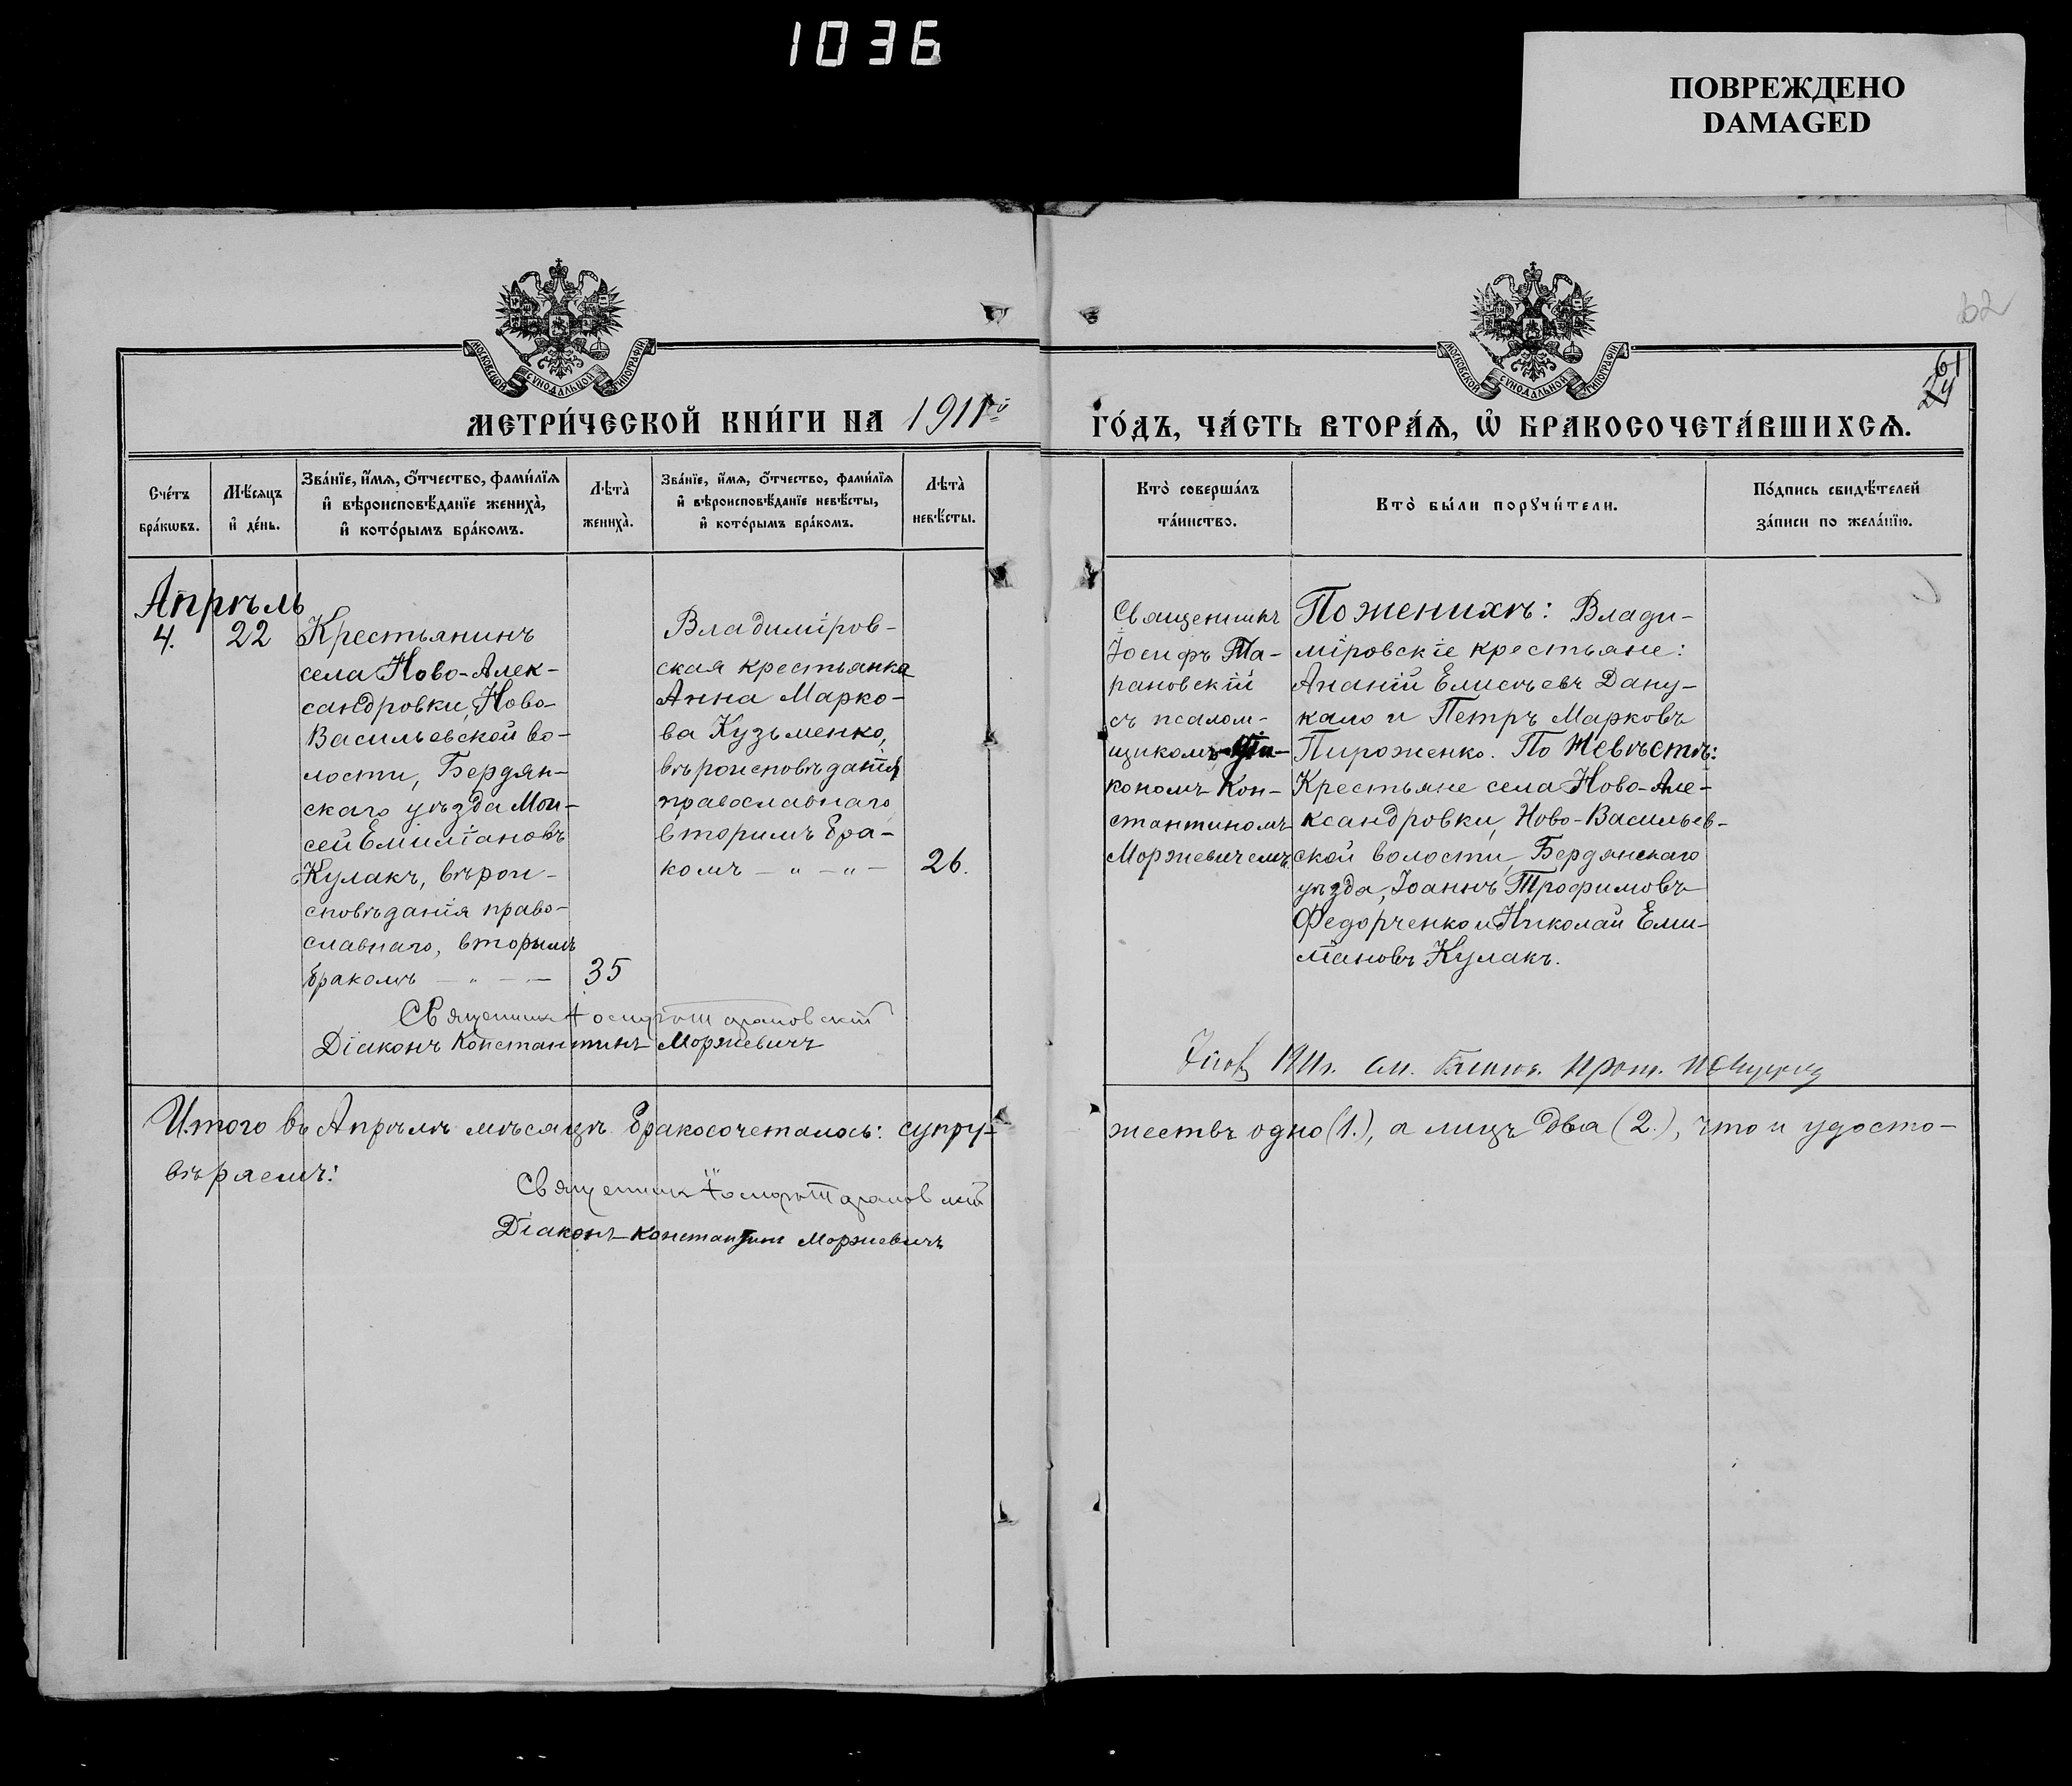 1036
ПОВРЕЖДЕНО
DAMAGED
62
61
МОСКОВСКОЙ СѴНОДАЛЬНОЙ ТИПОГРАФІИ
МОСКОВСКОЙ СѴНОДАЛЬНОЙ ТИПОГРАФІИ
МЕТРИ́ЧЕСКОЙ КНИ́ГИ НА 1911й
ГО́ДЪ, ЧА́СТЬ ВТОРА́Ѧ, Ѡ҆ БРАКОСОЧЕТА́ВШИХСѦ.
Сче́тъ
бра́кѡвъ.
Мѣ́сяцъ
и҆ де́нь.
Зва́нїе, и҆́мѧ, ѻ҆́тчество, фами́лїѧ
и҆ вѣроисповѣ́данїе жениха̀,
и҆ кото́рымъ бра́комъ.
Лѣта̀
жениха̀.
Зва́нїе, и҆́мѧ, ѻ҆́тчество, фами́лїѧ
и҆ вѣроисповѣ́данїе невѣ́сты,
и҆ кото́рымъ бра́комъ.
Лѣта̀
невѣ́сты.
Кто̀ соверша́лъ
та́инство.
Кто̀ бы́ли порꙋчи́тели.
По́дпись свидѣ́телей
за́писи по жела́нїю.
Апрѣль
4.
22
Крестьянинъ
села Ново-Алек-
сандровки, Ново-
Васильевской во-
лости, Бердян-
скаго уѣзда Мои-
сей Емиліановъ
Кулакъ, вѣрои-
сповѣданія право-
славнаго, вторымъ
бракомъ — „ — —
35
Владиміров-
ская крестьянка
Анна Марко-
ва Кузьменко,
вѣроисповѣданія
православнаго
вторимъ бра-
комъ — „ — „ —
26.
Священникъ
Іосифъ Та-
рановскій
съ псалом-
щикомъ-діа-
кономъ Кон-
стантиномъ
Моржевичемъ
По женихѣ: Влади-
міровскіе крестьяне:
Ананій Елисѣевъ Дану-
кало и Петръ Марковъ
Пироженко. По Невѣстѣ:
Крестьяне села Ново-Але-
ксандровки, Ново-Васильев-
ской волости, Бердянскаго
уѣзда, Іоаннъ Трофимовъ
Федорченко и Николай Еми-
ліановъ Кулакъ.
Священникъ Іосифъ Тарановскій
Діаконъ Константинъ Моржевичъ
1911г.
Итого въ Апрѣлѣ мѣсяцѣ бракосочеталось: супру-
жествъ одно (1.), а лицъ два (2.), что и удосто-
вѣряемъ:
Священникъ Іосифъ Тарановскій
Діаконъ Константинъ Моржевичъ